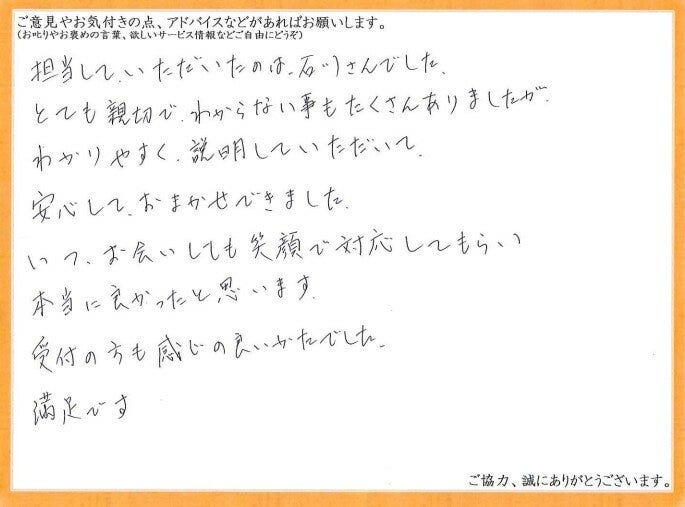 ご意見やお気付きの点、アドバイスなどがあればお願いします。
(お叱りやお褒めの言葉、欲しいサービス情報などご自由にどうぞ)
担当して、いただいたのは、石川さんでした。
とても親切で、わからない事もたくさんありましたが、
わかりやすく、説明していただいて、
安心して、おまかせできました。
いつ、お会いしても笑顔で対応してもらい
本当に良かったと思います。
受付の方も感じの良いかたでした。
満足です
ご協力、誠にありがとうございます。